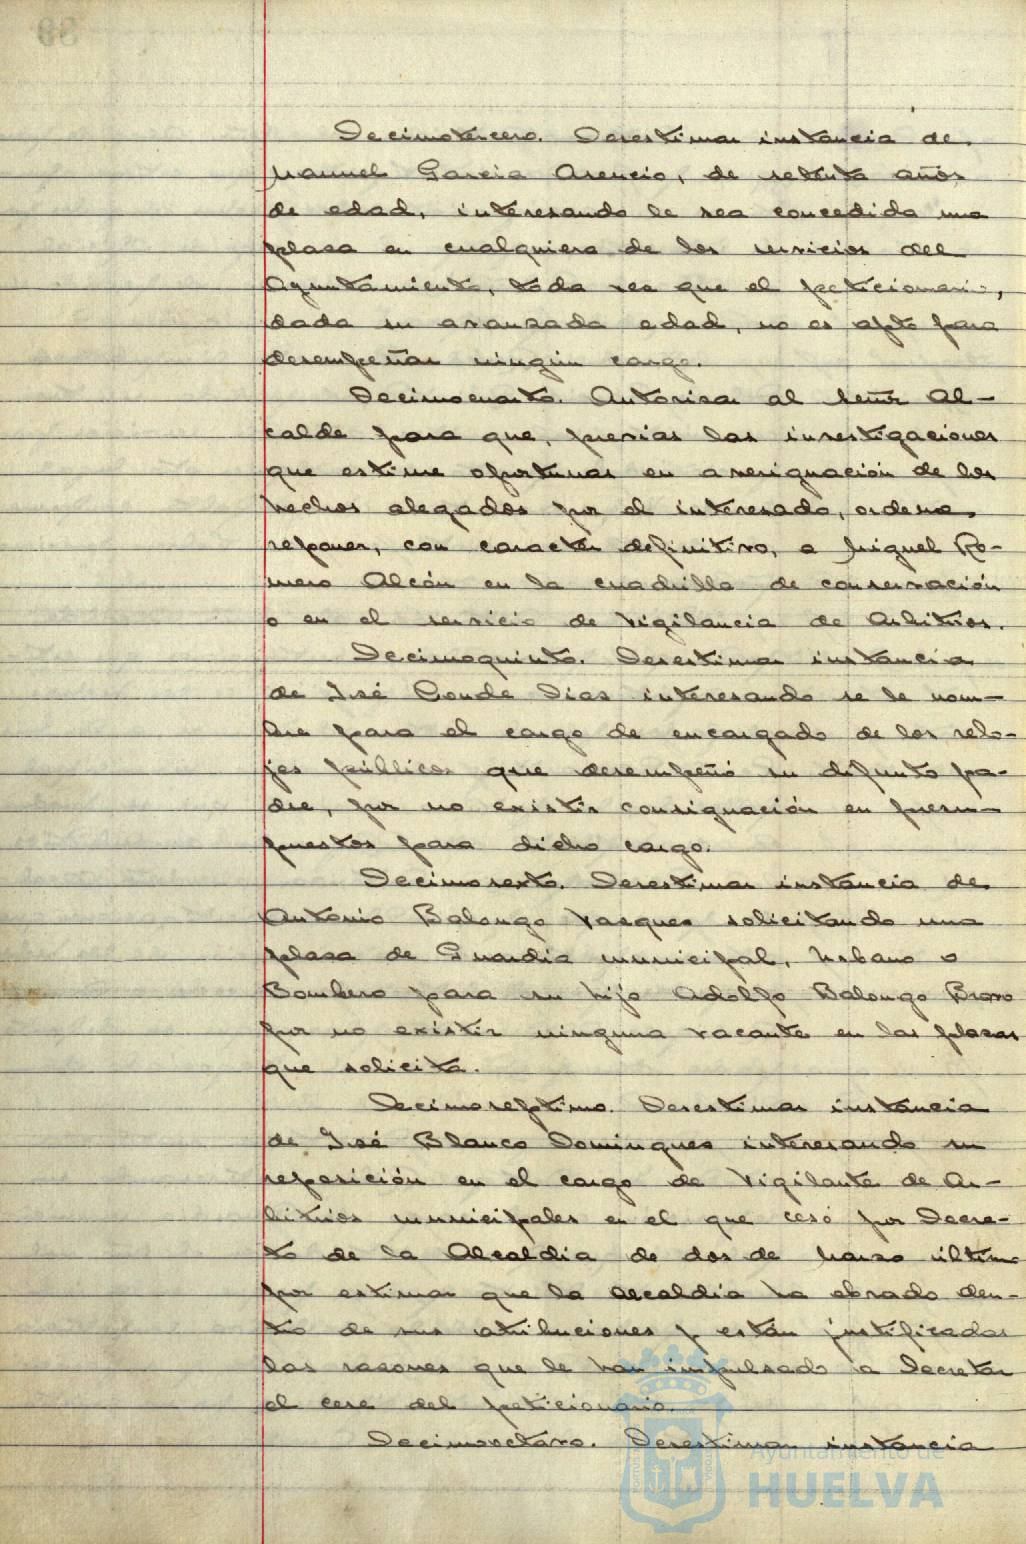 Decimotercero. Desestimar instancia de
Manuel Garcia Asencio, de setenta años
de edad, interesando le sea concedida una
plasa en cualquiera de los servicios del
Ayuntamiento, toda ves que el peticionario,
dada su avanzada edad, no es apto para
desempeñar ningún cargo.
Decimocuarto. Autorisar al señor Al-
calde para que, previas las investigaciones
que estime oportunas en averiguación de los
hechos alegados por el interesado, ordene
reponer, con caracter definitivo, a Miguel Ro-
mero Alcón en la cuadrilla de conservación
o en el servicio de Vigilancia de Arbitrios.
Decimoquinto. Desestimar instancia
de José Conde Dias interesando se le nom-
bre para el cargo de encargado de los relo-
jes públicos que desempeñó su difunto pa-
dre, por no existir consignación en presu-
puestos para dicho cargo.
Decimosexto. Desestimar instancia de
Antonio Balongo Vasques solicitando una
plasa de Guardia municipal, Urbano o
Bombero para su hijo Adolfo Balongo Bravo
por no existir ninguna vacante en las plasas
que solicita.
Decimoseptimo. Desestimar instancia
de José Blanco Domingues interesando su
reposición en el cargo de Vigilante de Ar-
bitrios municipales en el que cesó por Decre-
to de la Alcaldia de dos de Marso último
por estimar que la alcaldia ha obrado den-
tro de sus atribuciones y están justificadas
las rasones que le han impulsado a Decretar
el cese del peticionario.
Decimoctavo. Desestimar instancia
Ayuntamiento de
HUELVA